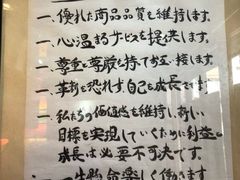 一、優れた商品品質を維持します。
一、心温まるサービスを提供します。
一、尊重と尊厳を持て接します。
一、革新を恐れず、自己を成長
一、私たちの価値感を維持し、高い
目標を実現していくために利益の
成長は必要不可決です。
働きます